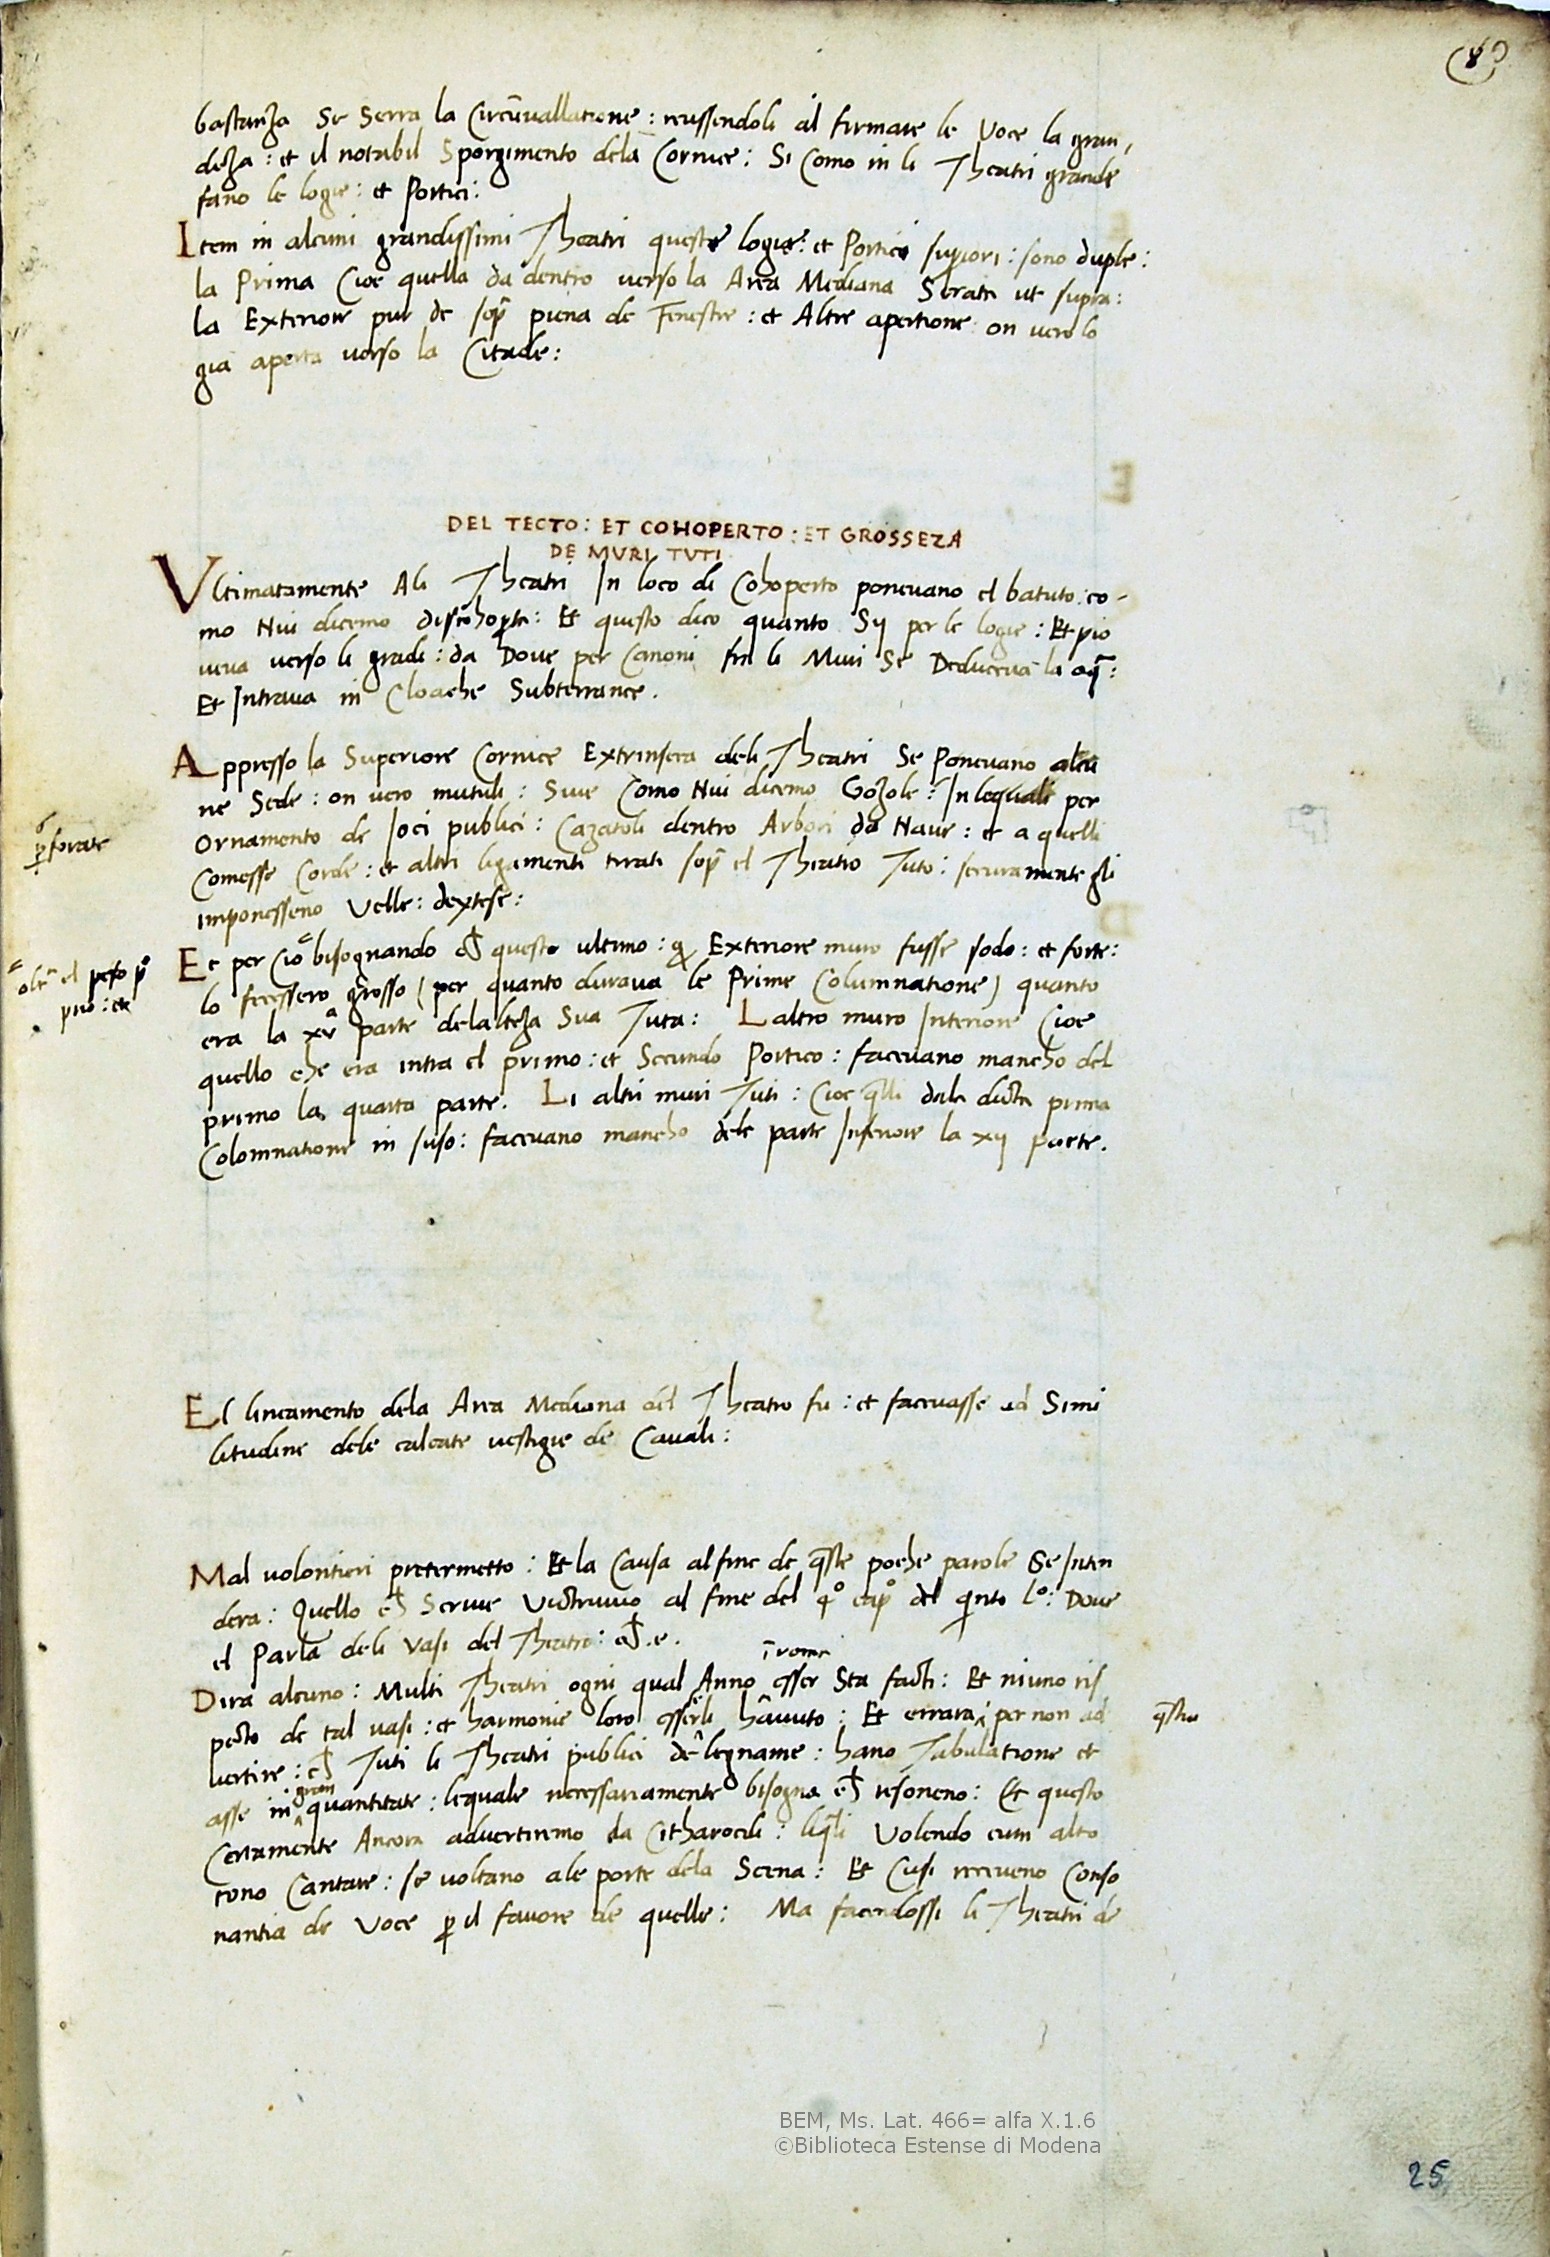 bastanza Se Serra la Circūvallatione : reussendoli al firmare le Voce la gran,
deza : et il notabil Sporgimento dela Cornice : Si Como in li Theatri grande
fano le logie : et Portici :
Item in alcuni grandissimi Theatri queste logie : et Portici supiori : sono duple :
la Prima Cioe quella da dentro verso la Area Mediana Serate ut supra :
la Exteriore pur de sop̄ piena de Fenestre : et Altre apertione on vero lo
gia aperta verso la Citade :
DEL TECTO : ET COHOPERTO : ET GROSSEZA
DE MURI TUTI
Ultimatamente Ali Theatri In loco di Cohoperto ponevano el batuto : co-
mo Nui dicemo discohoꝑte : Et questo dico quanto Sij per le logie : Et pio
veva verso li gradi : da Dove per Canoni fra li Muri Se Deduceva la aq̄ :
Et Intrava in Cloache Subterranee .
Appresso la Superiore Cornice Extrinseca deli Theatri Se Ponevano alcū
ne Sede : on vero mutuli : Sive Como Nui dicemo Gozole : In lequali per
ꝑforate
Ornamento de Ioci publici : Cazatoli dentro Arbori da Nave : et a quelli
Comesse Corde : et altri ligamenti tirati sop̄ el Theatro Tuto : securamente gli
imponesseno Velle : dextese :
Et per Cio bisognando cħ questo ultimo : ꝙ Exteriore muro fusse sodo : et forte :
el peso ꝑ
lo fecessero grosso (per quanto durava le Prime Columnatione) quanto
prio : et
era la xvª parte delalteza Sua Tuta : Laltro muro Interiore Cioe
quello che era intra el primo : et Secundo Portico : facevano mancho del
primo la quarta parte. Li altri muri Tuti : Cioe q̄lli dela dicta prima
Colomnatione in suso : facevano mancho dele parte Inferiore la xij parte.
El lineamento dela Area Mediana del Theatro fu : et facevasse ad Simi
litudine dele calcate vestigie de Cavali :
Mal volontieri pretermetto : Et la Causa al fine de q̄ste poche parole Se Inten
dera : Quello cħ Scrive Victruvio al fine del 4º capº del q̄nto lº : Dove
el Parla deli Vasi del Theatro : cħ.e.
ī roma
Dira alcuno : Multi Theatri ogni qual Anno esser Sta facti : Et niuno ris
pecto de tal vasi : et harmonie loro esserli havuto : Et errara per non ad
q̄stui
vertire : cħ Tuti li Theatri publici de legname : hano Tabulatione et
gran
asse in quantitate : lequale necessariamente bisogna cħ resoneno : Et questo
Certamente Ancora advertiremo da Citharoedi : liq̄li Volendo cum alto
tono Cantare : se voltano ale porte dela Scena : Et Cusi receveno Conso
nantia de Voce ꝑ il favore de quelle : Ma facendossi li Theatri de
BEM, Ms. Lat. 466= alfa X.1.6
©Biblioteca Estense di Modena
25